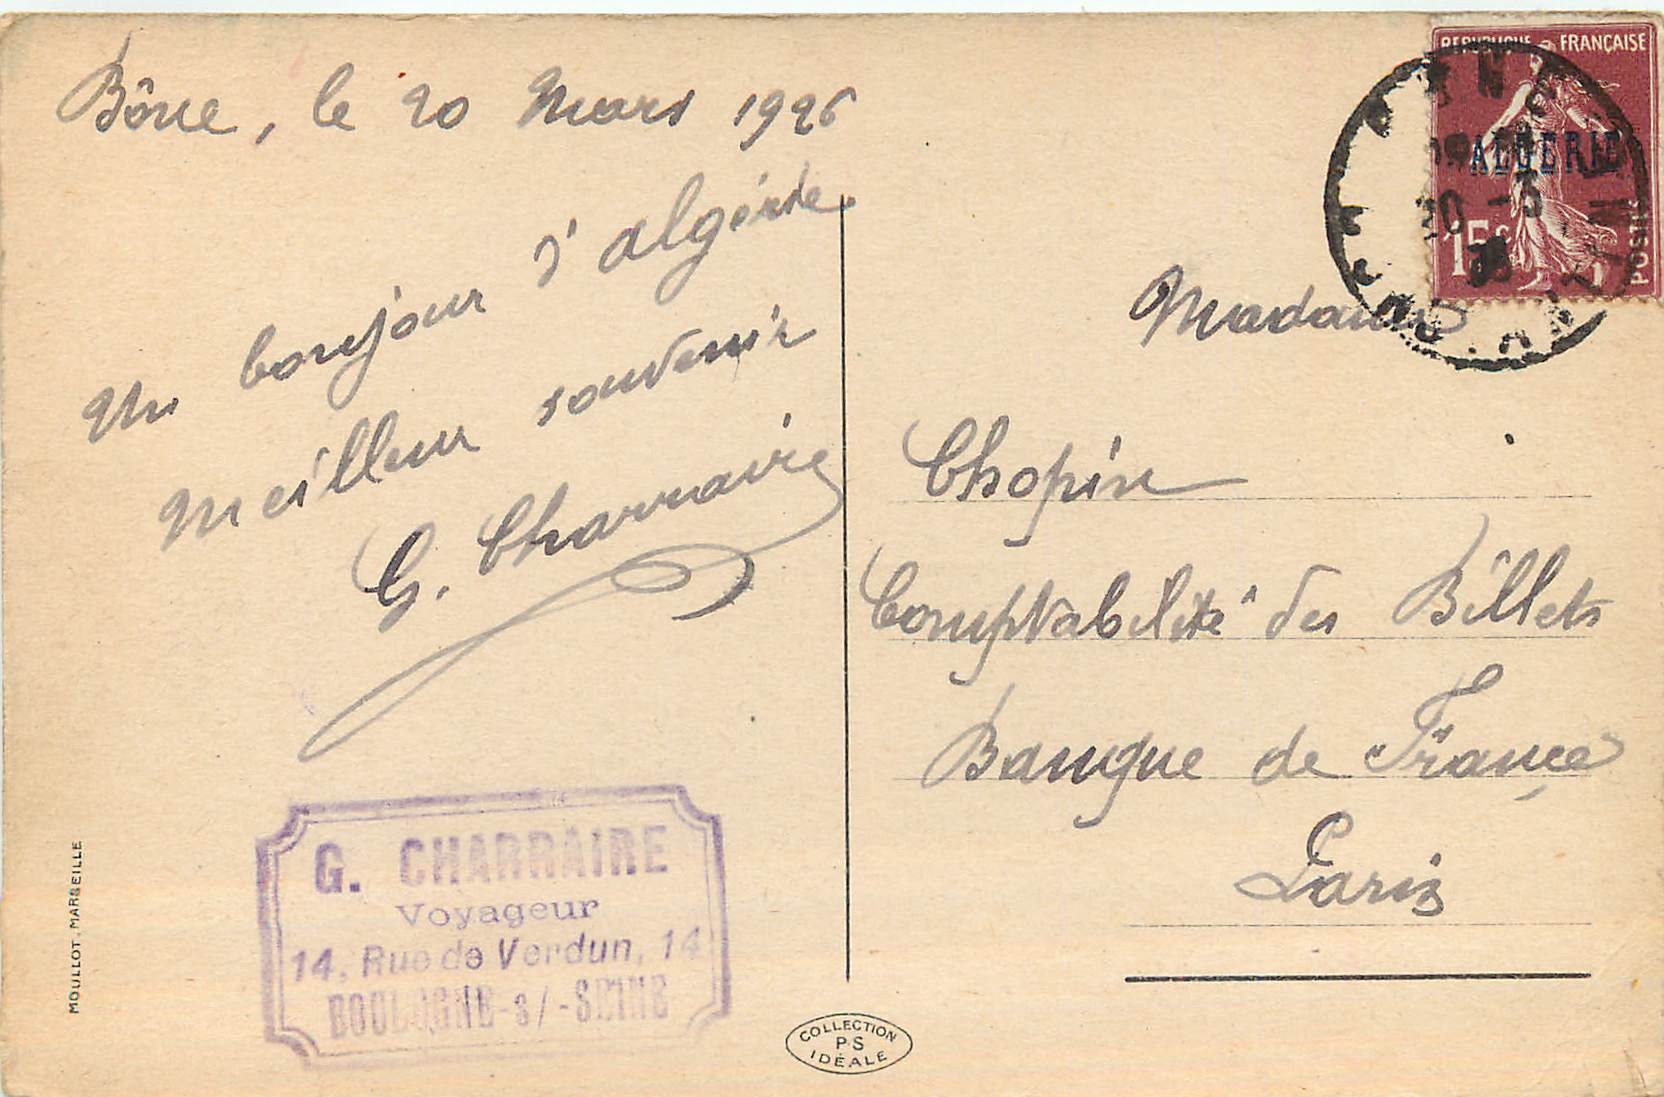 Bône, le 20 Mars 1926
Un bonjour d'algérie
Meilleur souvenir
G. Charraire
G. CHARRAIRE
Voyageur
14, Rue de Verdun, 14
BOULOGNE-s/-SEINE
MOULLOT. MARSEILLE
COLLECTION
PS
IDÉALE
REPUBLIQUE FRANÇAISE
ALGERIE
15c
POSTES
20 -3
Madame
Chopin
Comptabilité des Billets
Banque de France
Paris